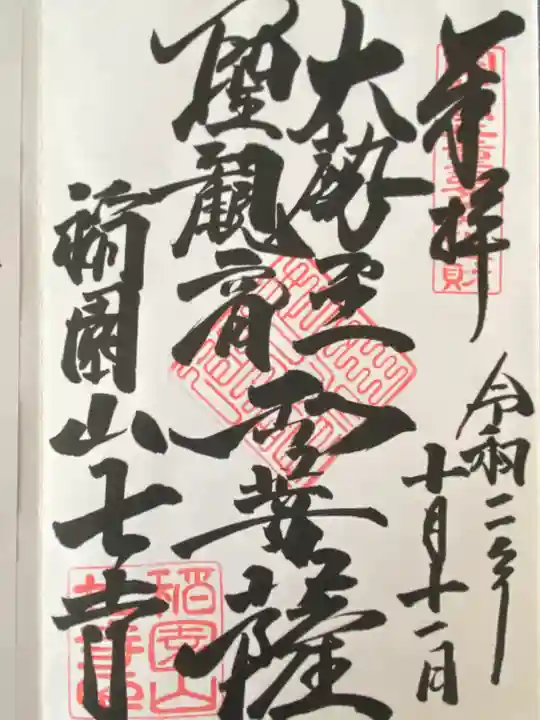 奉拝
令和二年
十月十一日
大勢至
聖観音
両菩薩
稲園山七寺
稲園山